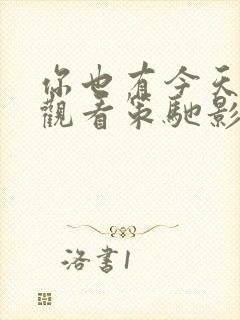 你也有今天
觀看策馳影
洛書1